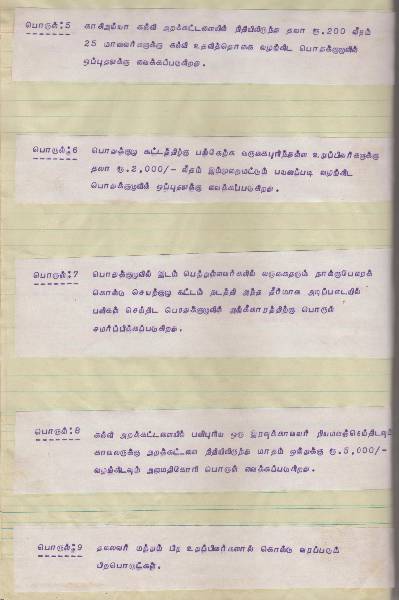 பொருள்:5 காசிஅய்யா கல்வி அறக்கட்டளையில் நிதியிலிருந்து தலா ரூ.200 வீதம்
25 மாணவர்களுக்கு கல்வி உதவித்தொகை வழங்கிட பொதுக்குழுவின்
ஒப்புதலுக்கு வைக்கப்படுகிறது.
பொருள்:6 பொதுக்குழு கூட்டத்திற்கு பங்கேற்க வருகைபுரிந்துள்ள உறுப்பினர்களுக்கு
தலா ரூ.2,000/- வீதம் இம்முறைமட்டும் பயணப்படி வழங்கிட
பொதுக்குழுவின் ஒப்புதலுக்கு வைக்கப்படுகிறது.
பொருள்:7 பொதுக்குழுவில் இடம் பெற்றுள்ளவர்களில் வருகைதரும் நான்குபேரைக்
கொண்டு செயற்குழு கூட்டம் நடத்தி அந்த தீர்மான அடிப்படையில்
பணிகள் செய்திட பொதுக்குழுவின் அங்கீகாரத்திற்கு பொருள்
சமர்ப்பிக்கப்படுகிறது.
பொருள்:8 கல்வி அறக்கட்டளையில் பணிபுரிய ஒரு இரவுக்காவலர் நியமனம்செய்திடவும்
காவலருக்கு அறக்கட்டளை நிதியிலிருந்து மாதம் ஒன்றுக்கு ரூ.5,000/-
வழங்கிடவும் அனுமதிகோரி பொருள் வைக்கப்படுகிறது.
பொருள்:9 தலைவர் மற்றும் பிற உறுப்பினர்களால் கொண்டு வரப்படும்
பிறபொருட்கள்.